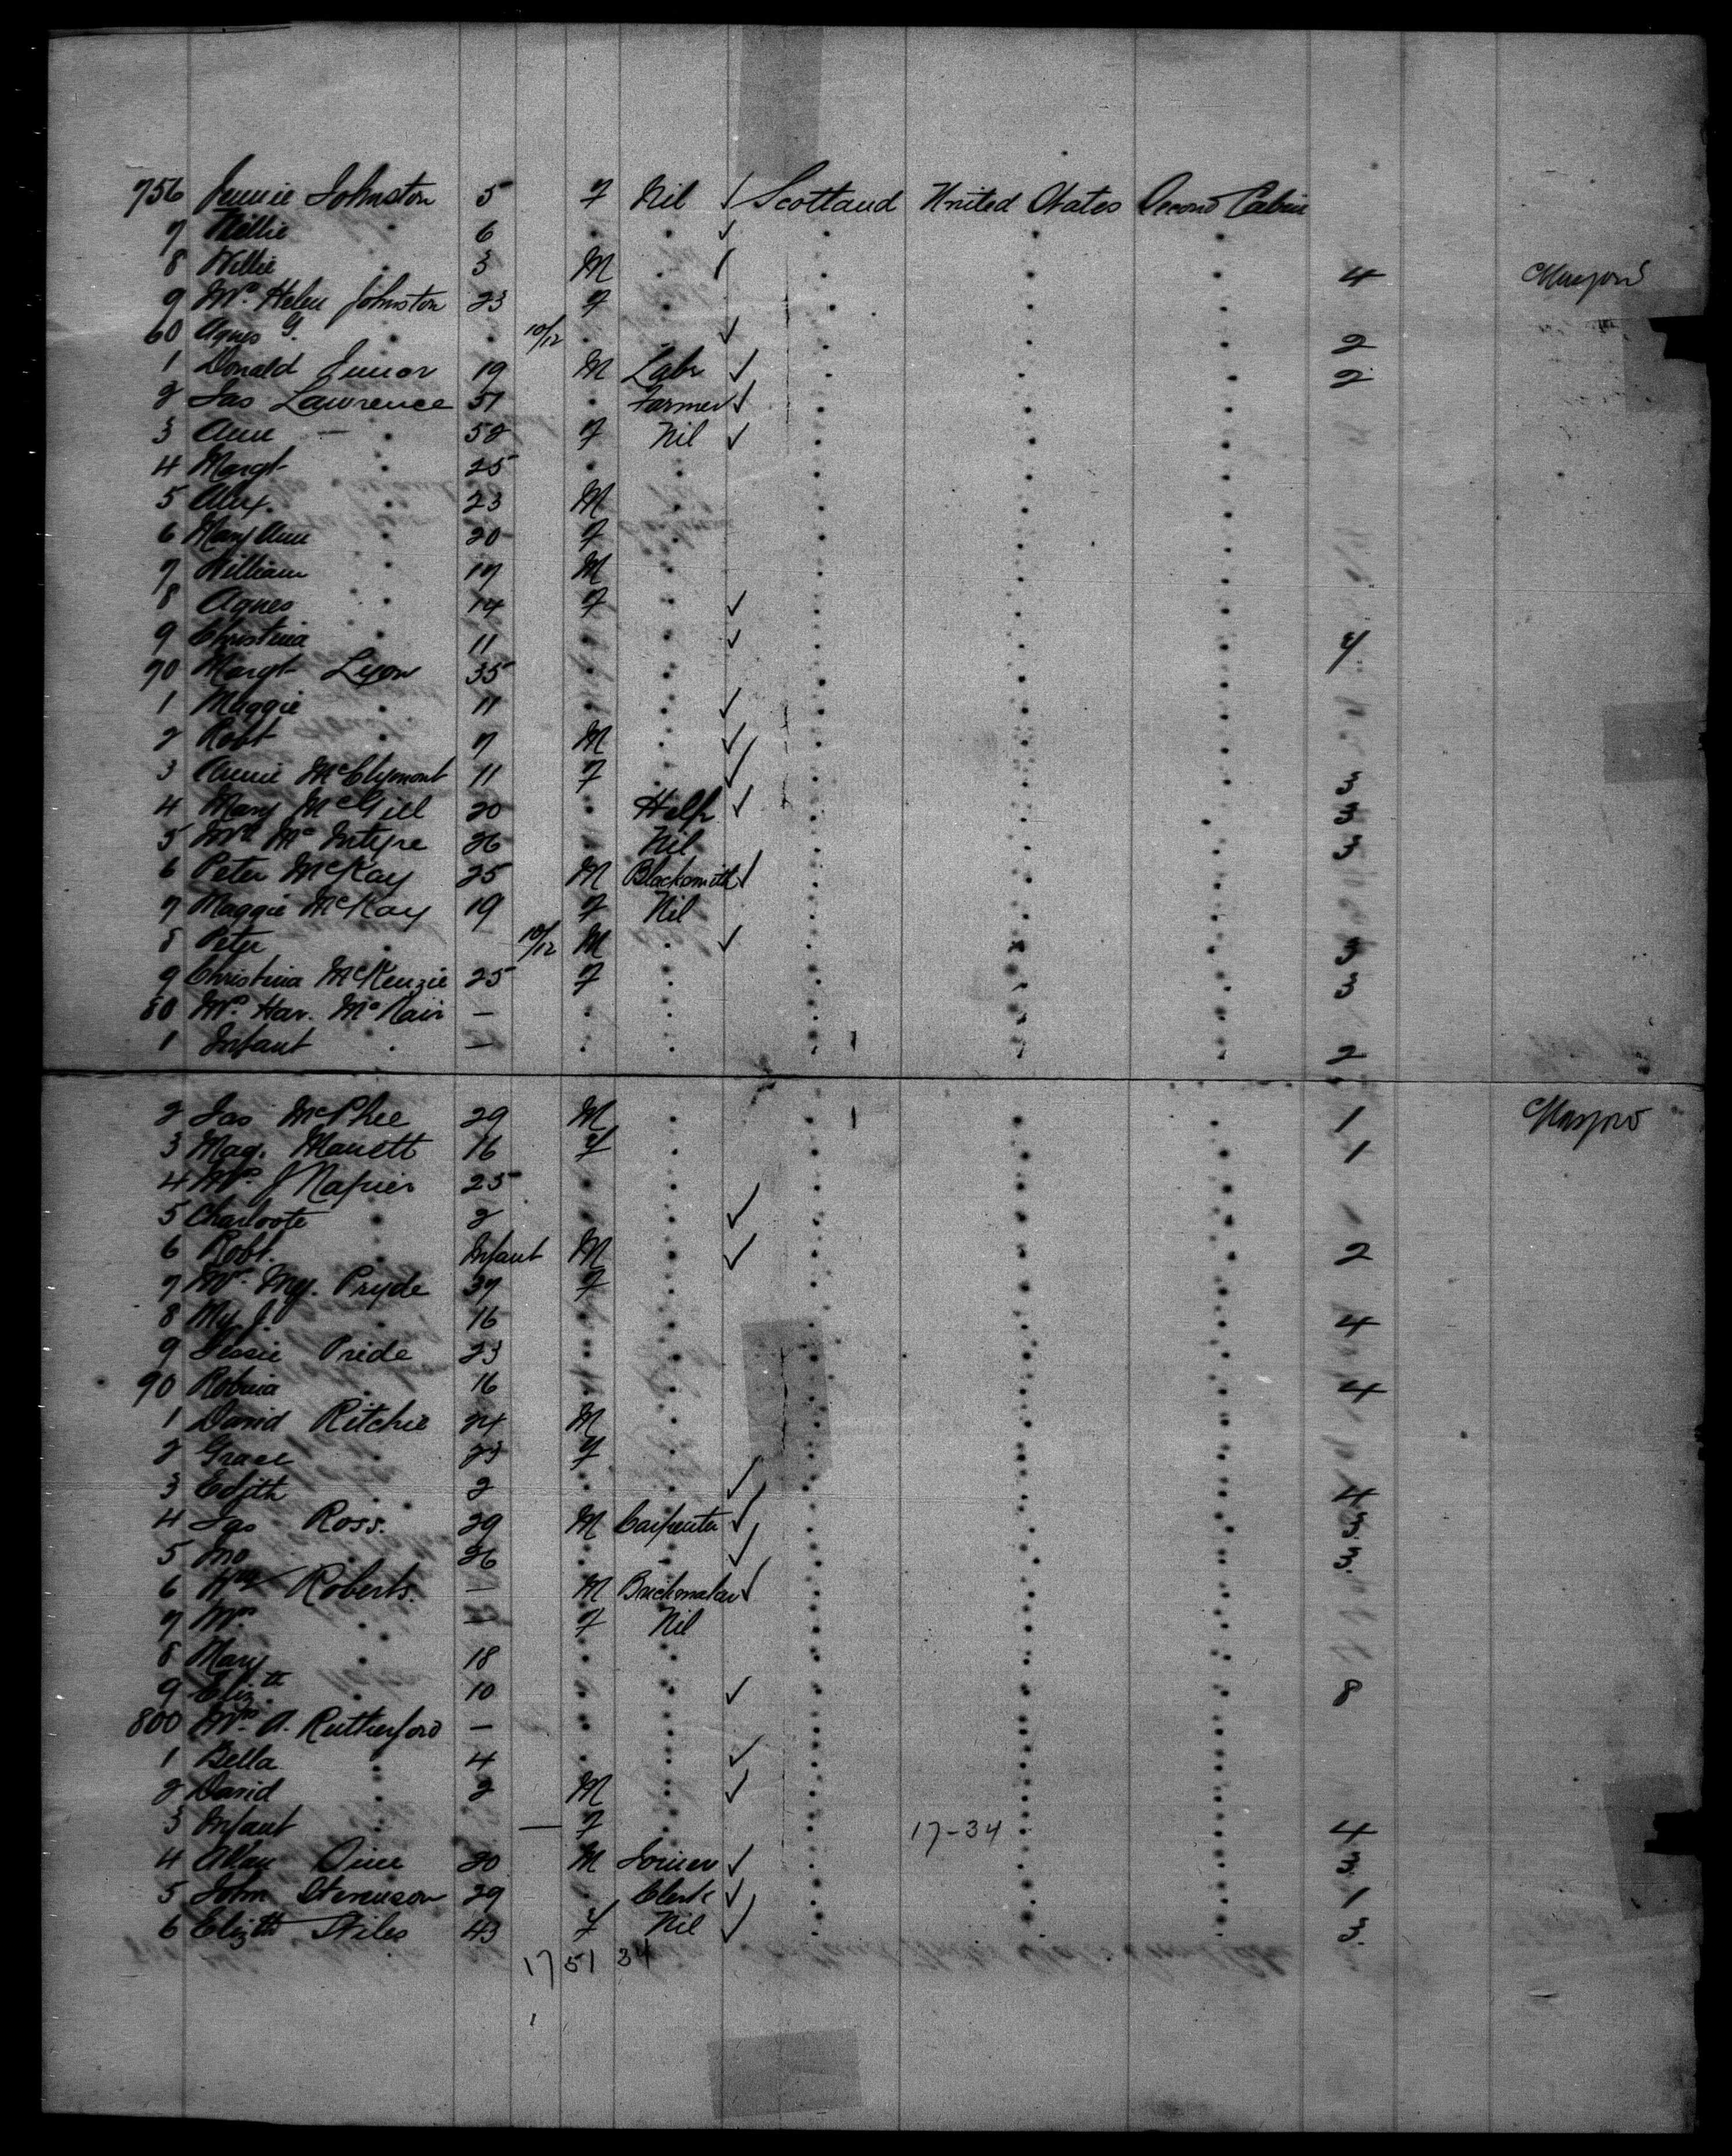 756 Jennie Johnston 5 F Nil ✓ Scotland United States Second Cabin
7 Nellie " 6 " " ✓ " " "
8 Willie " 3 M " ✓ " " " 4 Glasgow
9 Mrs Helen Johnston 23 F " " " "
60 Agnes G. " " 10/12 " " ✓ " " " 2
1 Donald Junior 19 M Labr ✓ " " " 2
2 Jas Lawrence 51 " Farmer ✓ " " "
3 Ann — " 52 F Nil ✓ " " "
4 Margt " 25 " " " " "
5 Alex. " 23 M " " " "
6 Mary Ann " 20 F " " " "
7 William " 17 M " " " "
8 Agnes " 14 F " ✓ " " "
9 Christina " 11 " " ✓ " " " 4
70 Margt Lyon 35 " " " " "
1 Maggie " 11 " " ✓ " " "
2 Robt " 7 M " ✓ " " "
3 Annie McClymont 11 F " ✓ " " " 3
4 Mary McGill 20 " Help ✓ " " " 3
5 McIntyre 26 " Nil " " " 3
6 Peter McKay 25 M Blacksmith ✓ " " "
7 Maggie McKay 19 F Nil " " "
8 Peter " 10/12 M " ✓ " " " 3
9 Christina McKenzie 25 F " " " " 3
80 Mrs Har. McNair — " " " " "
1 Infant " — " " " 1 " " 2
2 Jas McPhee 29 M " " 1 " " 1 Glasgow
3 Mag. 16 F " " " " 1
4 Mrs J Napier 25 " " " " "
5 Charloote " 2 " " ✓ " " "
6 Robt. " Infant M " ✓ " " " 2
7 Mrs My. Pryde 37 F " " " "
8 My J. " 16 " " " " " 4
9 Jessie Pride 23 " " " " "
90 Robina " 16 " " " " " 4
1 David Ritchie 24 M " " " "
2 Grace " 23 F " " " "
3 Edith " 2 " " ✓ " " " 4
4 Jas Ross. 29 M Carpenter ✓ " " " 3
5 Jno " 26 " " ✓ " " " 3
6 Roberts. — M Brickmaker ✓ " " "
7 Mrs " — F Nil " " "
8 Mary " 18 " " " " "
9 Elizth " 10 " " ✓ " " " 8
800 Mrs A. Rutherford — " " " " "
1 Bella " 4 " " ✓ " " "
2 David " 2 M " ✓ " " "
3 Infant " — F " " 17-34 " " 4
4 Allan 20 M Joiner ✓ " " " 3
5 John Stevenson 29 " Clerk ✓ " " " 1
6 Elizth Stiles 43 F Nil ✓ " " " 3
17 51 34